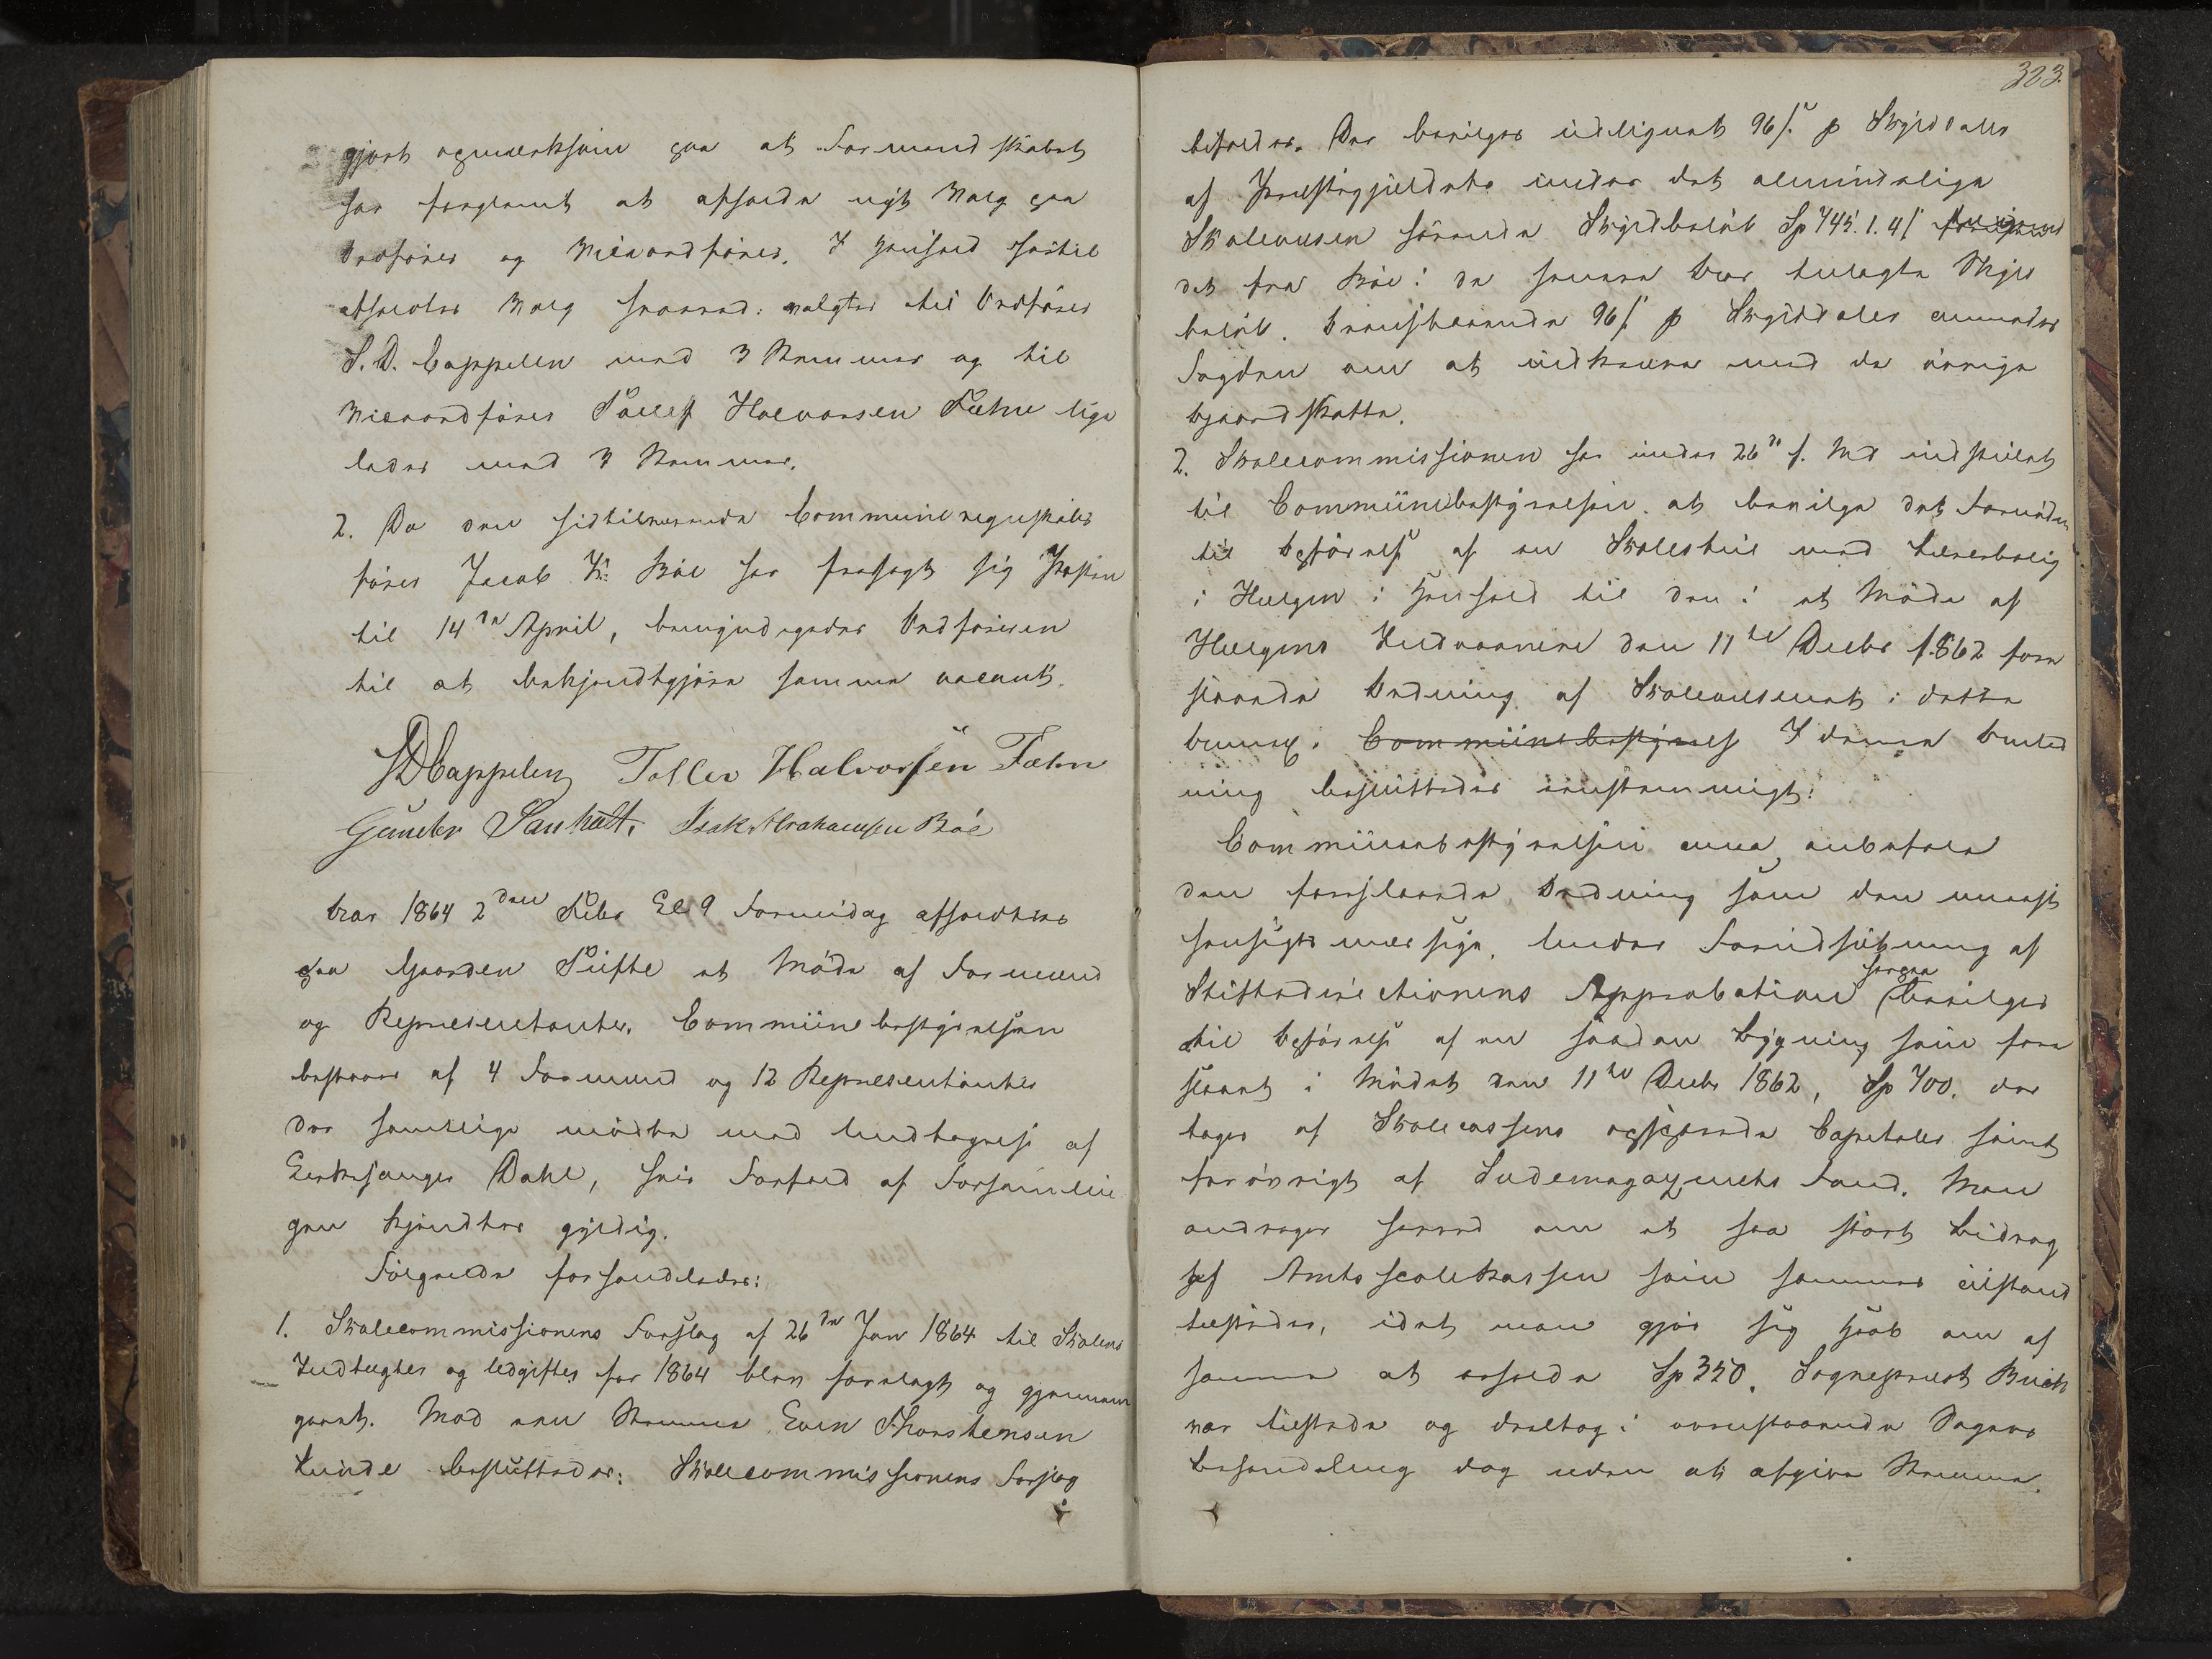 gjort opmærksom paa at Formandskabet
har forglemt at afholde nyt Valg paa
Ordfører og Viceordfører. I Henhold hertil
afholdtes Valg hvorved valgtes til Ordfører
S. D. Cappelen med 3 Stemmer og til
Viceordfører Tollef Halvorsen Fæhn lige
ledes med 3 Stemmer.
2. Da den hidtilværende Communeregnskabs
fører Jacob Bøe har frasagt sig Posten
til 14de April, bemyndigedes Ordføreren
til at bekjendtgjøre samme vacant.
SDCappelen Tollev Halvorsen Fæhn
Gunder Isak Abrahamsen Bøe
Aar 1864 2den Febr Kl 9 Formidag afholdtes
paa Gaarden Tufte et Møde af Formænd
og Repræsentanter. Communebestyrelsen
bestaar af 4 Formænd og 12 Repræsentanter
der samtlige mødte med Undtagelse af
Kirkesanger Dahl, hvis Forfald af Forsamlin
gen kjendtes gyldig.
Følgende forhandledes:
1. Skolecommissionens Forslag af 26de Jan 1864 til Skolens
Indtægter og Udgifter for 1864 blev forelagt og gjennem
gaaet. Mod een Stemme Even Thorstensen
Lunde besluttedes: Skolecommissionens Forslag
323.
bifaldes. Der bevilges udlignet 96 s. p Skylddaler
af Præstegjeldets under det almindelige
Skolevæsen hørende Skyldbeløb Sp 745. 1. 4 s
det fra Bøe i de senere Aar tillagte Skyld
beløb. Ovenstaaende 96 s. p Skylddaler anmodes
Fogden om at indkræve med de øvrige
Bygdeskatte.
2. Skolecommissionen har under 26de f. Md indstillet
til Communebestyrelsen at bevilge det Fornødne
til Opførelse af en Skolestue med Lærerbolig
i Helgen i Henhold til den i et Møde af
Helgens Indvaanere den 11te Decbr 1862 fore
slaaede Ordning af Skolevæsenet i dette
Annex. Communebestyrels I denne Anled
ning besluttedes eenstemmigt:
Communebestyrelsen maa anbefale
den foreslaaede Ordning som den meest
hensigtsmæssige. Under Forudsætning af
Stiftsdirectionens Approbation herpaa bevilges
til Opførelse af en saadan Bygning som fore
slaaet i Mødet den 11te Decbr 1862, Sp 700. der
tages af Skolecassens opsparede Capitaler samt
forøvrigt af Sædemagazinets Fond. Man
andrager herved om et saa stort Bidrag
af Amtsscolekassen som sammes Tilstand
tilsteder, idet man gjør sig Haab om af
samme at erholde Sp 350. Sognepræst Buch
var tilstede og deeltog i ovenstaaende Sagers
Behandling dog uden at afgive Stemme.